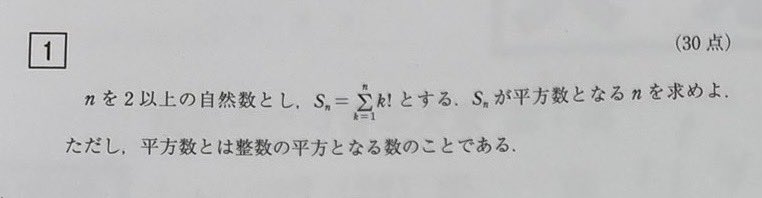 1
(30点)
nを2以上の自然数とし，Sₙ=∑ⁿₖ₌₁k!とする．Sₙが平方数となるnを求めよ．
ただし，平方数とは整数の平方となる数のことである．